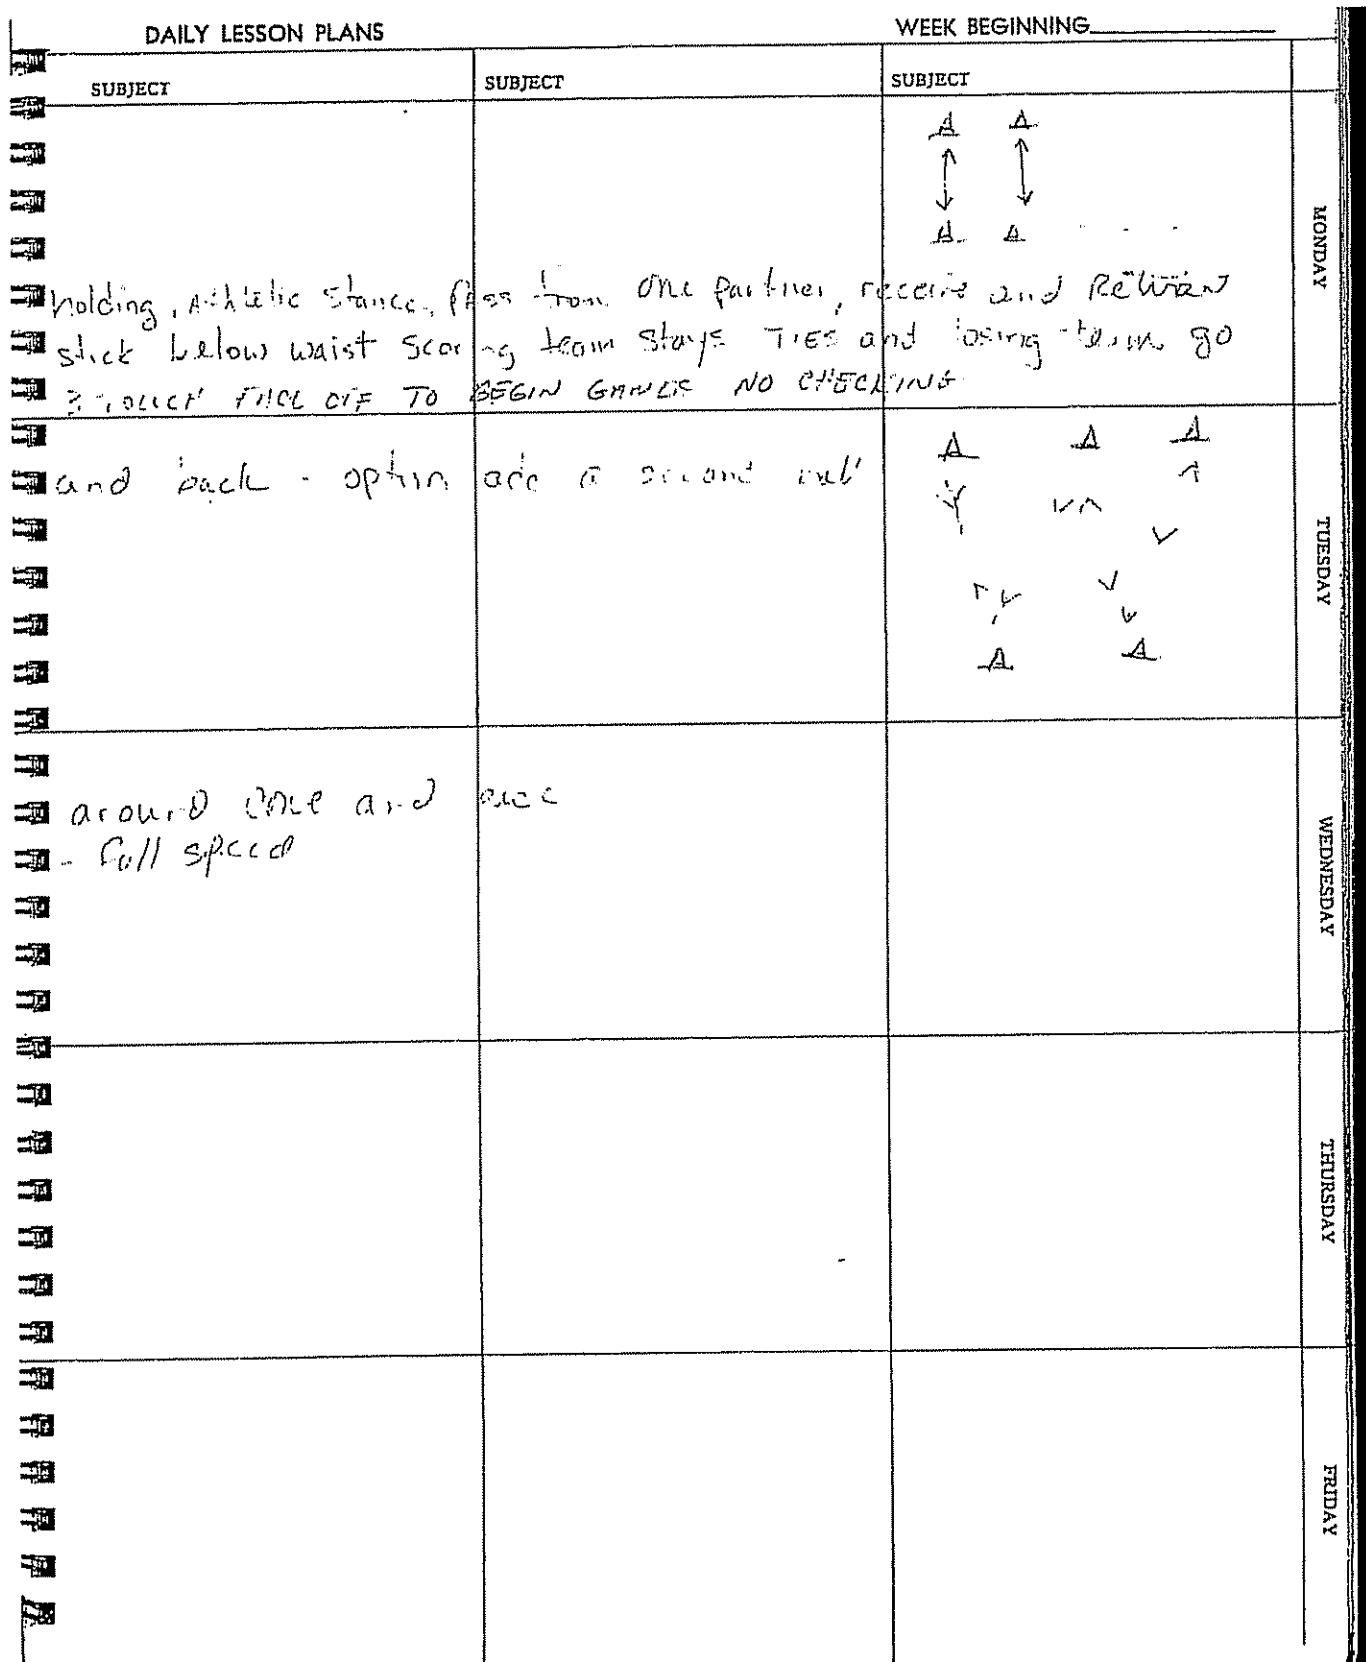 DAILY LESSON PLANS WEEK BEGINNING
SUBJECT SUBJECT SUBJECT
MONDAY
holding, Athletic Stance, Pass from one partner, receive and Return
stick below waist Scoring team stays TIES and losing team go
3 TOUCH FACE OFF TO BEGIN GAMES NO CHECKING
TUESDAY
and back - option add a second
WEDNESDAY
around cone and
- Full speed
THURSDAY
FRIDAY